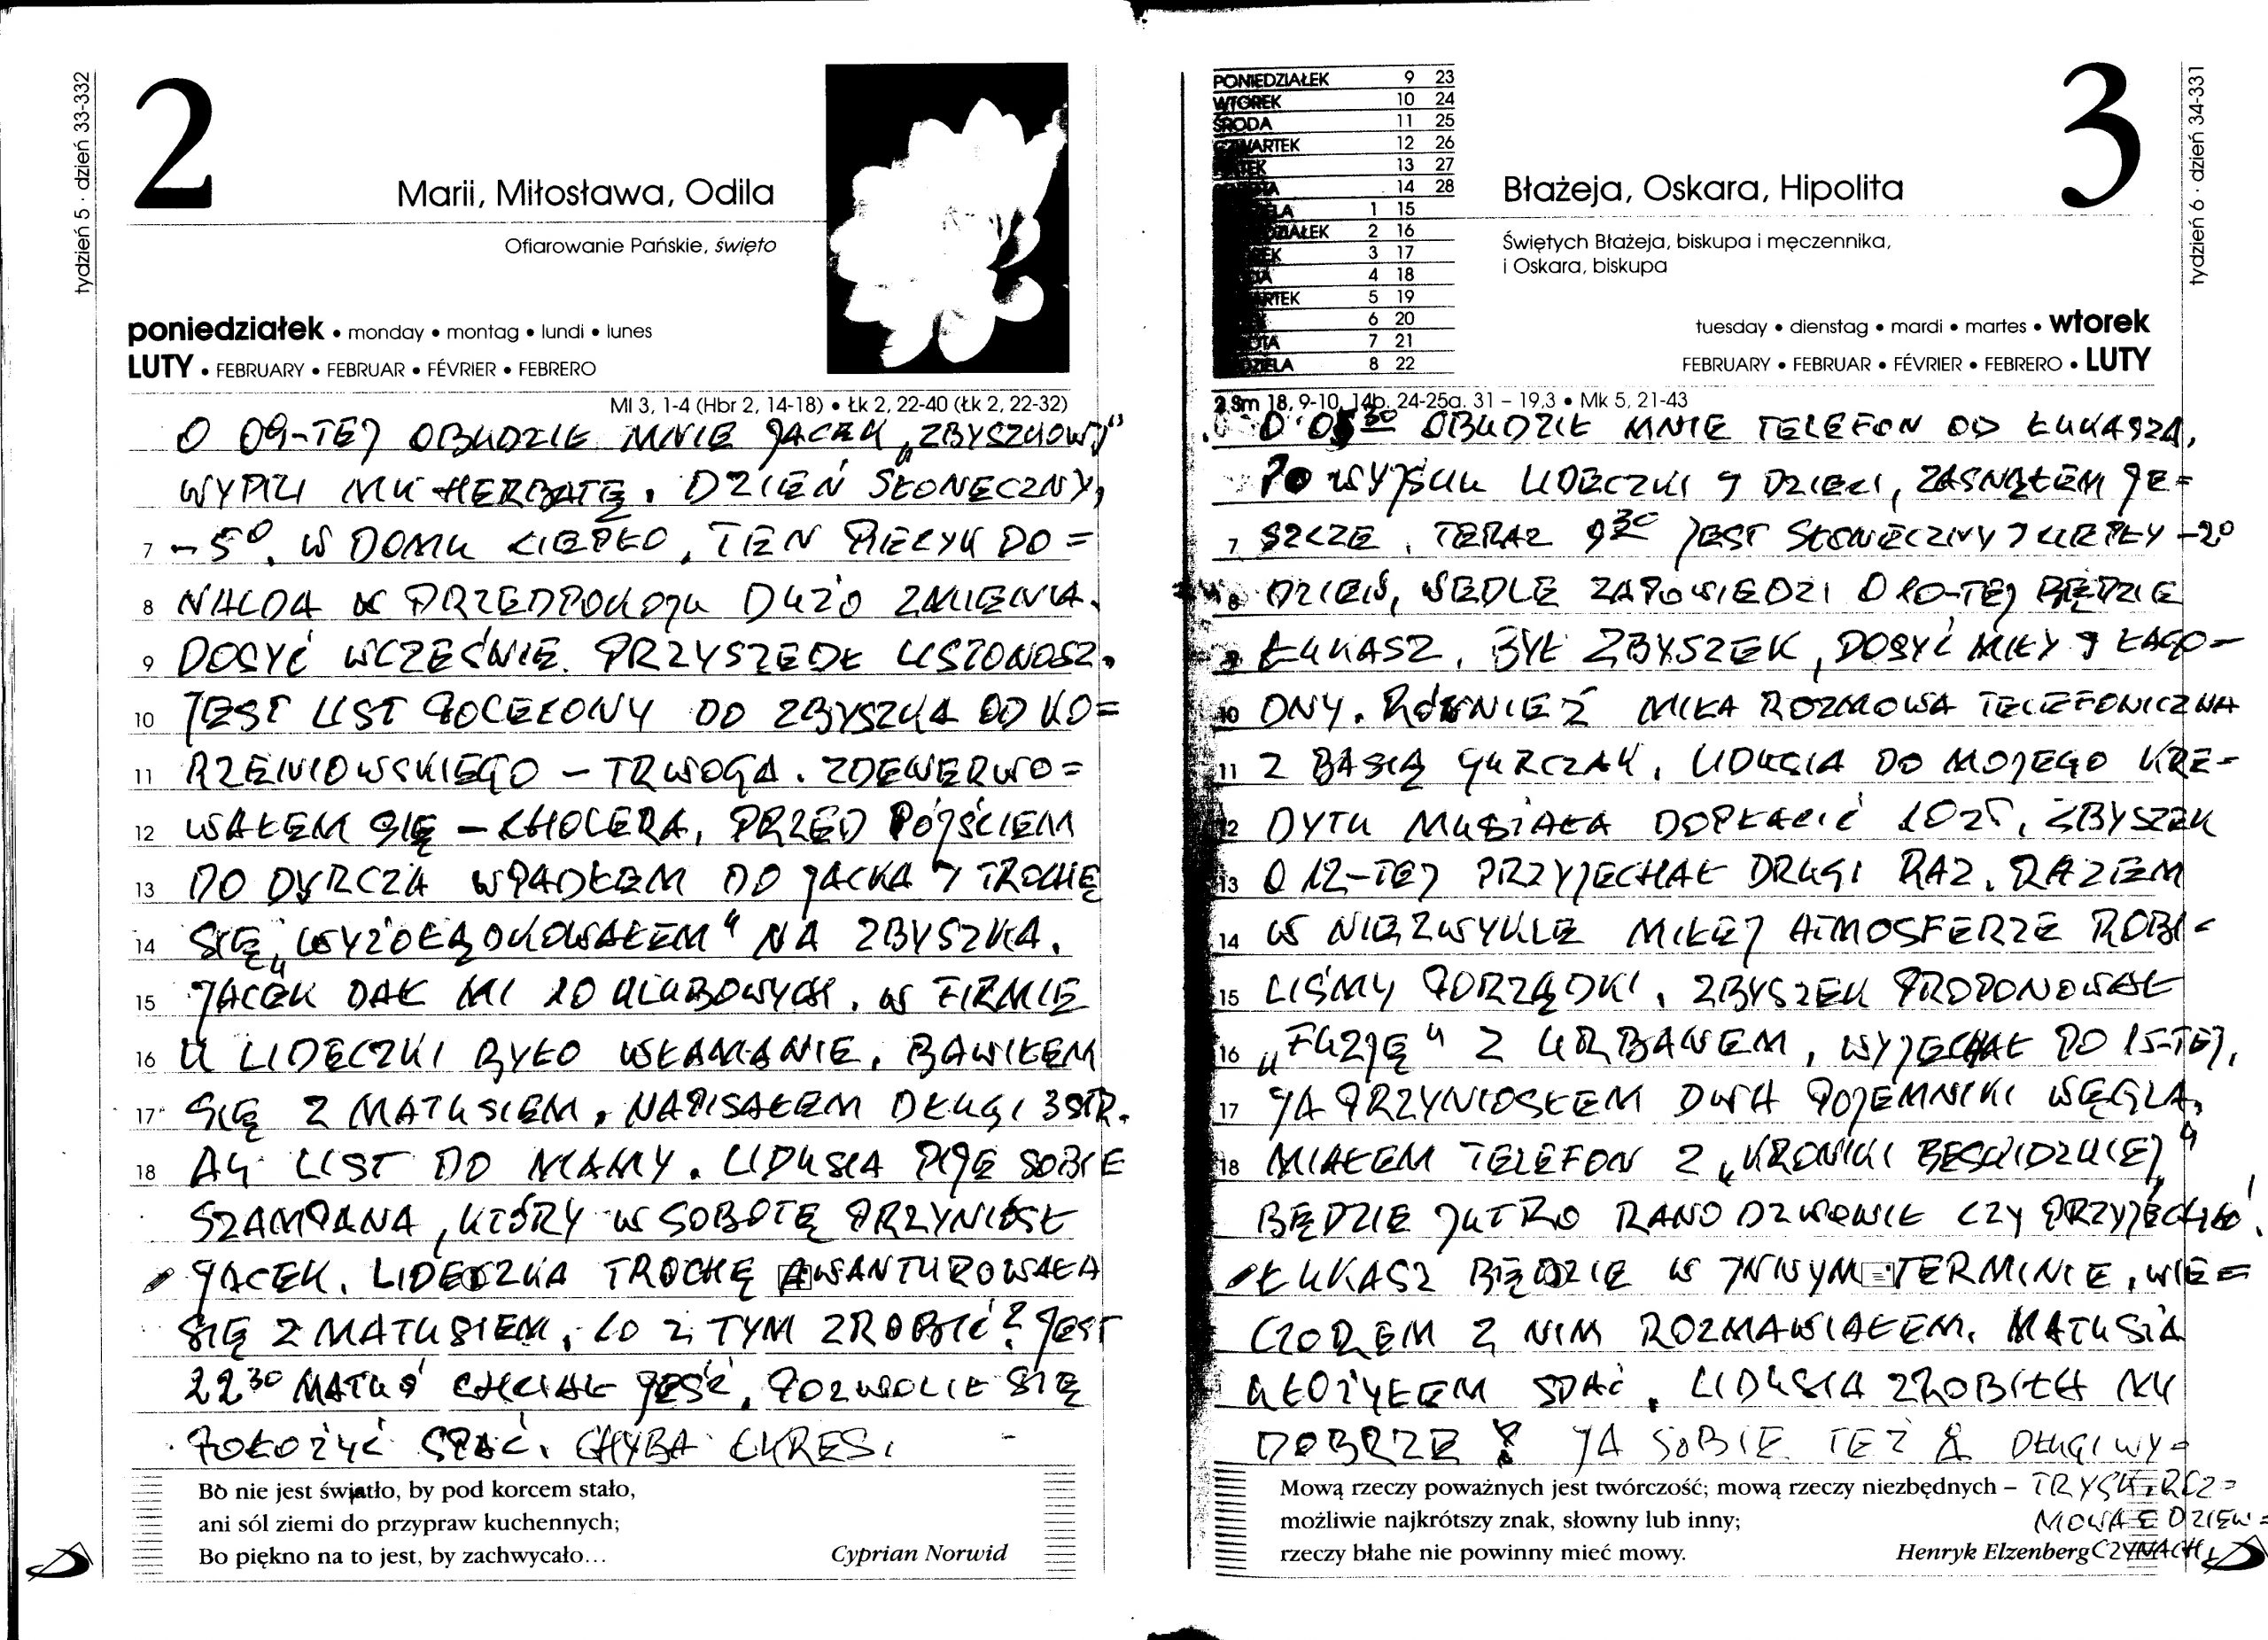 tydzień 5 · dzień 33-332
2
Marii, Miłosława, Odila
Ofiarowanie Pańskie, święto
poniedziałek • monday • montag • lundi • lunes
LUTY • FEBRUARY • FEBRUAR • FÉVRIER • FEBRERO
Ml 3, 1-4 (Hbr 2, 14-18) • Łk 2, 22-40 (Łk 2, 22-32)
O 09-TEJ OBUDZIŁ MNIE JACEK „ZBYSZKOWY"
WYPILI MU HERBATĘ. DZIEŃ SŁONECZNY,
7 -5⁰. W DOMU CIEPŁO, TEN PIECYK DO=
8 NALDA W PRZEDPOKOJU DUŻO ZMIENIA.
9 DOSYĆ WCZEŚNIE PRZYSZEDŁ LISTONOSZ.
10 JEST LIST POLECONY DO ZBYSZKA OD KO=
11 RZENIOWSKIEGO – TRWOGA. ZDENERWO=
12 WAŁEM SIĘ – CHOLERA, PRZED PÓJŚCIEM
13 DO DYRCZA WPADŁEM DO JACKA I TROCHĘ
14 SIĘ „WYŻOŁĄDKOWAŁEM" NA ZBYSZKA.
15 JACEK DAŁ MI 20 KLUBOWYCH. W FIRMIE
16 U LIDECZKI BYŁO WŁAMANIE. BAWIŁEM
17 SIĘ Z MATUSIEM, NAPISAŁEM DŁUGI 3 STR.
18 A4 LIST DO MAMY. LIDUSIA PIJE SOBIE
SZAMPANA, KTÓRY W SOBOTĘ PRZYNIÓSŁ
JACEK. LIDECZKA TROCHĘ AWANTUROWAŁA
SIĘ Z MATUSIEM, CO Z TYM ZROBIĆ? JEST
22³⁰ MATUŚ CHCIAŁ JEŚĆ, POZWOLIŁ SIĘ
POŁOŻYĆ SPAĆ. CHYBA CUKRES.
Bo nie jest światło, by pod korcem stało,
ani sól ziemi do przypraw kuchennych;
Bo piękno na to jest, by zachwycało…
Cyprian Norwid
PONIEDZIAŁEK 9 23
WTOREK 10 24
ŚRODA 11 25
CZWARTEK 12 26
13 27
14 28
1 15
2 16
3 17
4 18
5 19
6 20
7 21
8 22
3
tydzień 6 · dzień 34-331
Błażeja, Oskara, Hipolita
Świętych Błażeja, biskupa i męczennika,
i Oskara, biskupa
tuesday • dienstag • mardi • martes • wtorek
FEBRUARY • FEBRUAR • FÉVRIER • FEBRERO • LUTY
2 Sm 18, 9-10. 14b. 24-25a. 31 – 19,3 • Mk 5, 21-43
O 05³⁰ OBUDZIŁ MNIE TELEFON OD ŁUKASZA,
PO WYJŚCIU LIDECZKI I DZIECI, ZASNĄŁEM JE=
7 SZCZE. TERAZ 9³⁰ JEST SŁONECZNY I CIEPŁY -2⁰
8 DZIEŃ, WEDLE ZAPOWIEDZI O 10-TEJ BĘDZIE
9 ŁUKASZ. BYŁ ZBYSZEK, DOSYĆ MIŁY I ŁAGO–
10 DNY. RÓWNIEŻ MIŁA ROZMOWA TELEFONICZNA
11 Z BASIĄ GURCZAK. LIDUSIA DO MOJEGO KRE–
12 DYTU MUSIAŁA DOPŁACIĆ 10 ZŁ. ZBYSZEK
13 O 12-TEJ PRZYJECHAŁ DRUGI RAZ. RAZEM
14 W NIEZWYKLE MIŁEJ ATMOSFERZE ROBI–
15 LIŚMY PORZĄDKI. ZBYSZEK PROPONOWAŁ
16 „FUZJĘ" Z URBANEM, WYJECHAŁ PO 15-TEJ.
17 JA PRZYNIOSŁEM DWA POJEMNIKI WĘGLA,
18 MIAŁEM TELEFON Z „KRONIKI BESKIDZKIEJ"
BĘDZIE JUTRO RANO DZWONIŁ CZY PRZYJECHAĆ!
ŁUKASZ BĘDZIE W INNYM TERMINIE, WIE=
CZOREM Z NIM ROZMAWIAŁEM. MATUSIA
UŁOŻYŁEM SPAĆ. LIDUSIA ZROBIŁA MU
DOBRZE! JA SOBIE TEŻ & DŁUGI WY=
Mową rzeczy poważnych jest twórczość; mową rzeczy niezbędnych –
możliwie najkrótszy znak, słowny lub inny;
rzeczy błahe nie powinny mieć mowy.
Henryk Elzenberg
DZIEW=
CZYNACH.